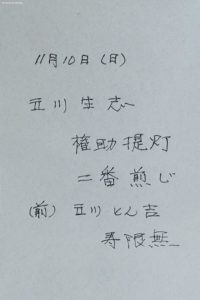 11月10日(日)
立川生志
権助提灯
二番煎じ
(前) 立川とん吉
寿限無